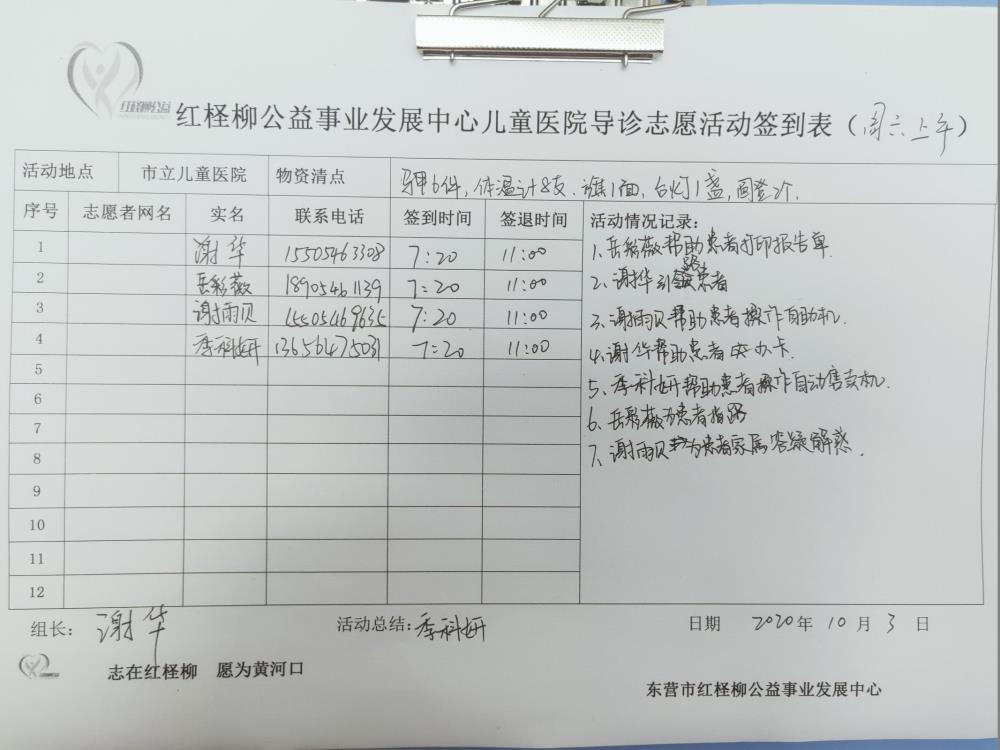 红柽柳公益
红柽柳公益事业发展中心儿童医院导诊志愿活动签到表（周六上午）
活动地点 市立儿童医院 物资清点 马甲6件，体温计8支，旗1面，台灯1盏，
序号 志愿者网名 实名 联系电话 签到时间 签退时间 活动情况记录：
1 谢华 15505463308 7:20 11:00
2 岳彩薇 18905461139 7:20 11:00
3 谢雨贝 15505469635 7:20 11:00
4 季科妍 13656475031 7:20 11:00
5
6
7
8
9
10
11
12
1、岳彩薇帮助患者打印报告单.
2、谢华引路患者
3、谢雨贝帮助患者操作自助机.
4、谢华帮助患者办卡.
5、季科妍帮助患者操作自动售货机.
6、岳彩薇为患者指路
7、谢雨贝为患者家属答疑解惑.
组长： 谢华 活动总结：季科妍 日期 2020年10月3日
志在红柽柳 愿为黄河口
东营市红柽柳公益事业发展中心